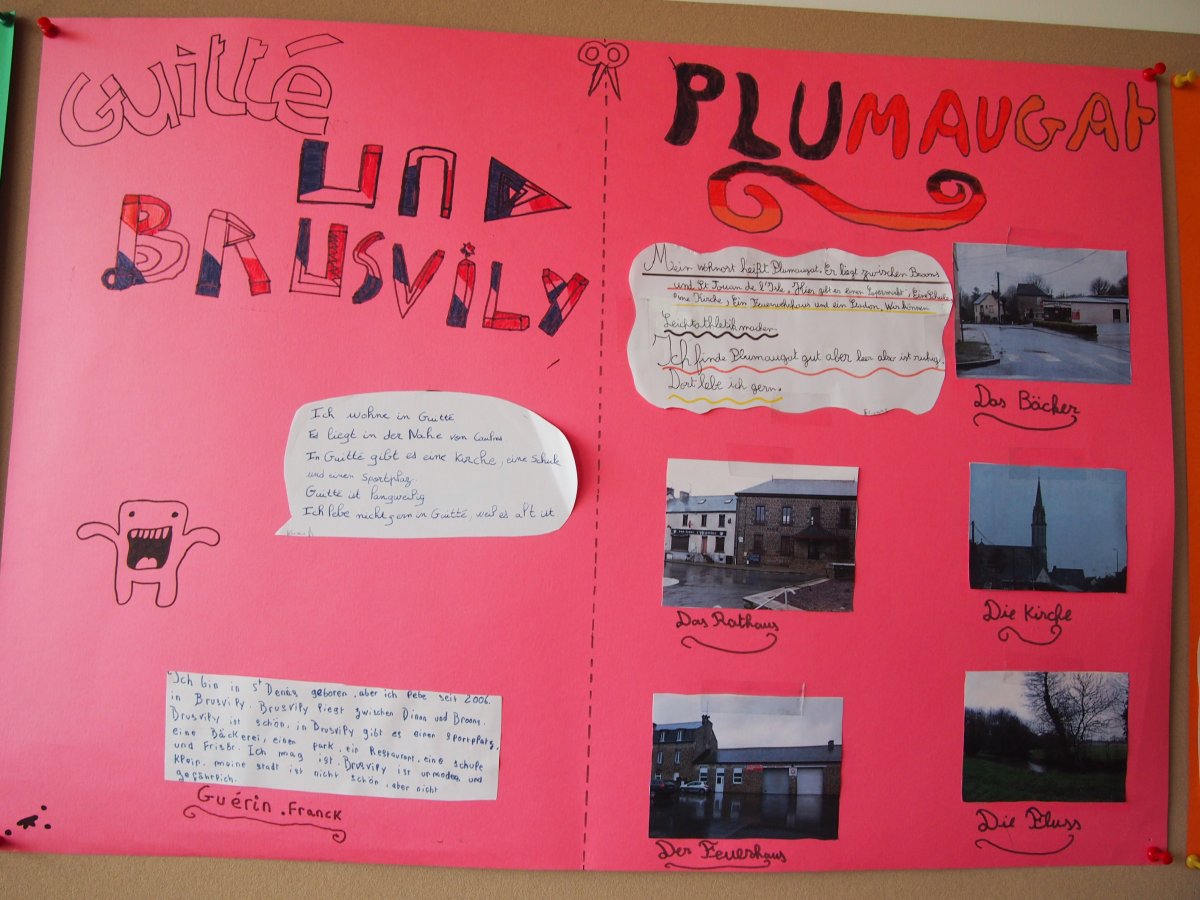 Guitté
und
Brusvily
Ich wohne in Guitté
Es liegt in der Nähe von Caulnes
In Guitté gibt es eine Kirche, eine Schule
und einen Sportplaz.
Guitté ist langweilig
Ich lebe nicht gern in Guitté, weil es alt ist
Ich bin in St Denis geboren, aber ich lebe seit 2006.
in Brusvily. Brusvily liegt zwischen Dinan und Broons.
Brusvily ist schön. in Brusvily gibt es einen Sportplatz,
eine Bäckerei, einen park, ein Restaurant, eine schule
und Frisör. Ich mag ist. Brusvily ist urmoden und
klein. meine stadt ist nicht schön, aber nicht
gefährlich.
Guérin .Franck
PLUMAUGAt
Mein wohnort heißt Plumaugat. Er liegt zwischen Broons
und St Jouan de l'Isle. Hier gibt es einen Supermarkt, Ein Schule
eine Kirche, Ein Feuerwehrhaus und ein Stadion, Wir können
Leichtathletik machen.
Ich finde Plumaugat gut aber leer also ist ruhig.
Dort lebe ich gern.
Das Bäcker
Das Rathaus
Die Kirche
Der Feuerhaus
Die Fluss